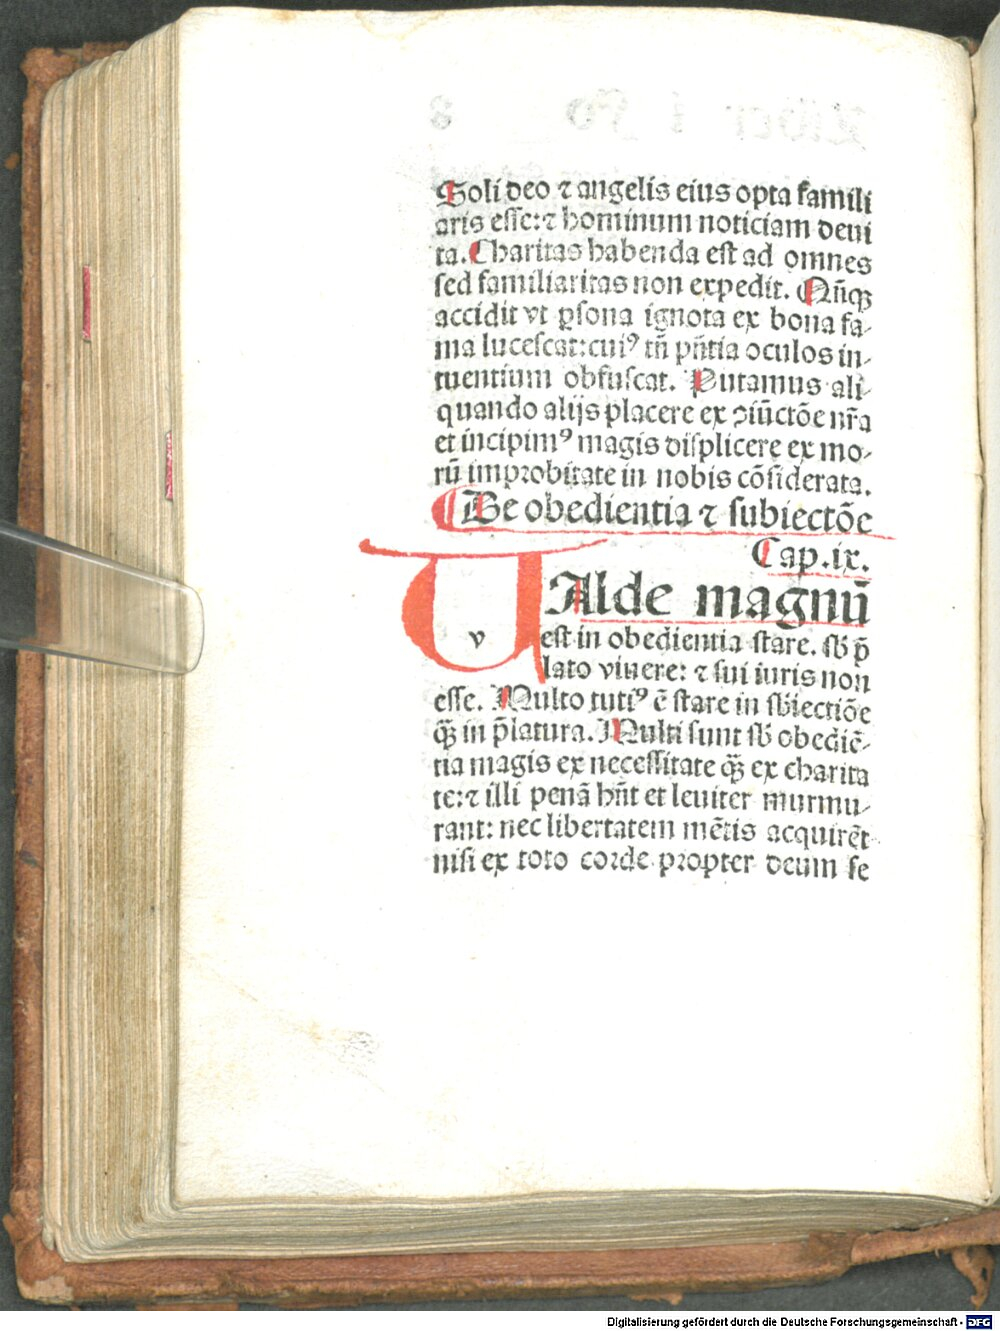 Soli deo ⁊ angelis eius opta famili
aris esse:⁊ hominum noticiam deui
ta. Charitas habenda est ad omnes
sed familiaritas non expedit. Nūꝙ̄
accidit vt ꝑsona ignota ex bona fa⸗
ma lucescat:cuiꝰ tn̄ pn̄tia oculos in⸗
tuentium obfuscat. Putamus ali⸗
quando alijs placere ex ↄiūctōe nr̄a
et incipimꝰ magis displicere ex mo⸗
rū improbitate in nobis cōsiderata.
De obedientia ⁊ subiectōe
Cap.ix.
VAlde magnū
est in obedientia stare. sb̄ p̄
lato viuere: ⁊ sui iuris non
esse. Multo tutiꝰ ē stare in sb̄iectiōe
ꝙ̄ in p̄latura. Multi sunt sb̄ obediē⸗
tia magis ex necessitate ꝙ̄ ex charita
te:⁊ illi penā hn̄t et leuiter murmu⸗
rant: nec libertatem mētis acquirēt
nisi ex toto corde propter deum se
Digitalisierung gefördert durch die Deutsche Forschungsgemeinschaft - DFG